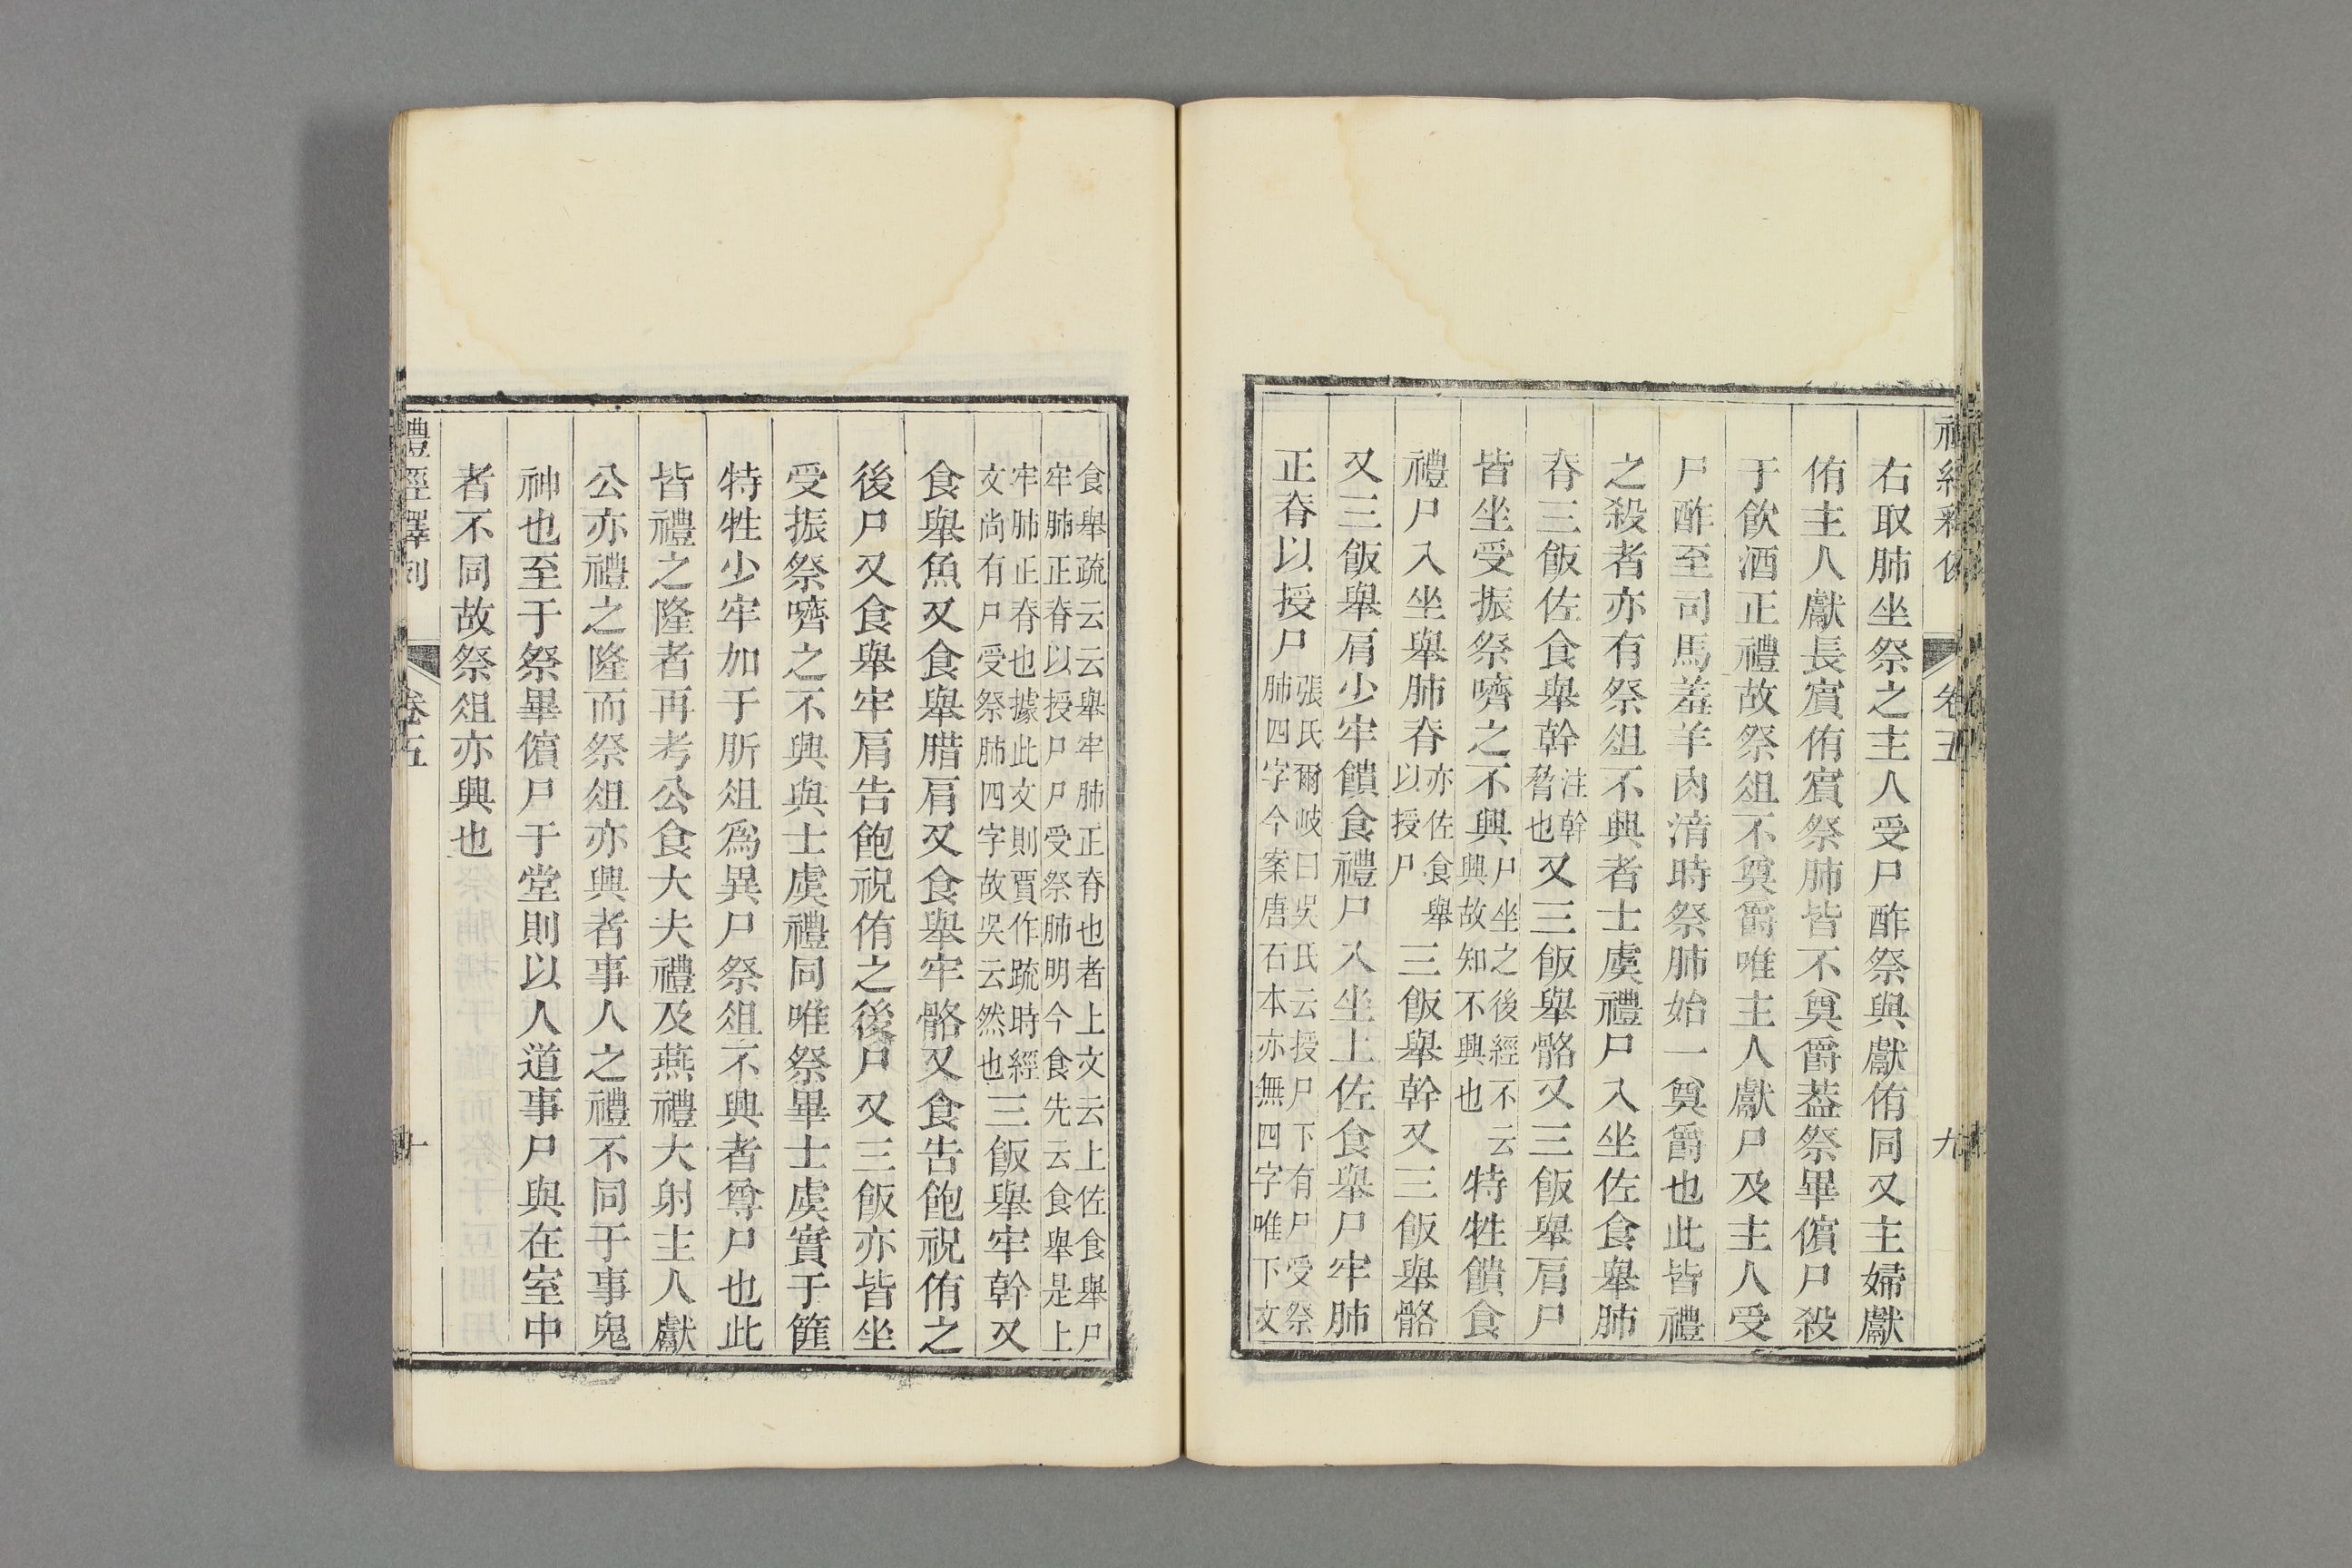 右取肺坐祭之主人受尸酢祭與獻侑同又主婦獻
侑主人獻長賓侑賓祭肺皆不奠爵葢祭畢儐尸殺
于飲酒正禮故祭俎不奠爵唯主人獻尸及主人受
尸酢至司馬羞羊肉湆時祭肺始一奠爵也此皆禮
之殺者亦有祭俎不興者士虞禮尸入坐佐食舉肺
脊三飯佐食舉幹注幹脅也又三飯舉骼又三飯舉肩尸
皆坐受振祭嚌之不興尸坐之後經不云興故知不興也特牲饋食
禮尸入坐舉肺脊亦佐食舉以授尸三飯舉幹又三飯舉骼
又三飯舉肩少牢饋食禮尸入坐上佐食舉尸牢肺
正脊以授尸張氏爾岐曰吳氏云授尸下有尸受祭肺四字今案唐石本亦無四字唯下文
食舉疏云云舉牢肺正脊也者上文云上佐食舉尸牢肺正脊以授尸尸受祭肺明今食先云食舉是上
牢肺正脊也據此文則賈作疏時經文尚有尸受祭肺四字故吳云然也三飯舉牢幹又
食舉魚又食舉腊肩又食舉牢骼又食告飽祝侑之
後尸又食舉牢肩告飽祝侑之後尸又三飯亦皆坐
受振祭嚌之不興與士虞禮同唯祭畢士虞實于篚
特牲少牢加于肵俎爲異尸祭俎不興者尊尸也此
皆禮之隆者再考公食大夫禮及燕禮大射主人獻
公亦禮之隆而祭俎亦興者事人之禮不同于事鬼
神也至于祭畢儐尸于堂則以人道事尸與在室中
者不同故祭俎亦興也
卷五
九
卷五
十